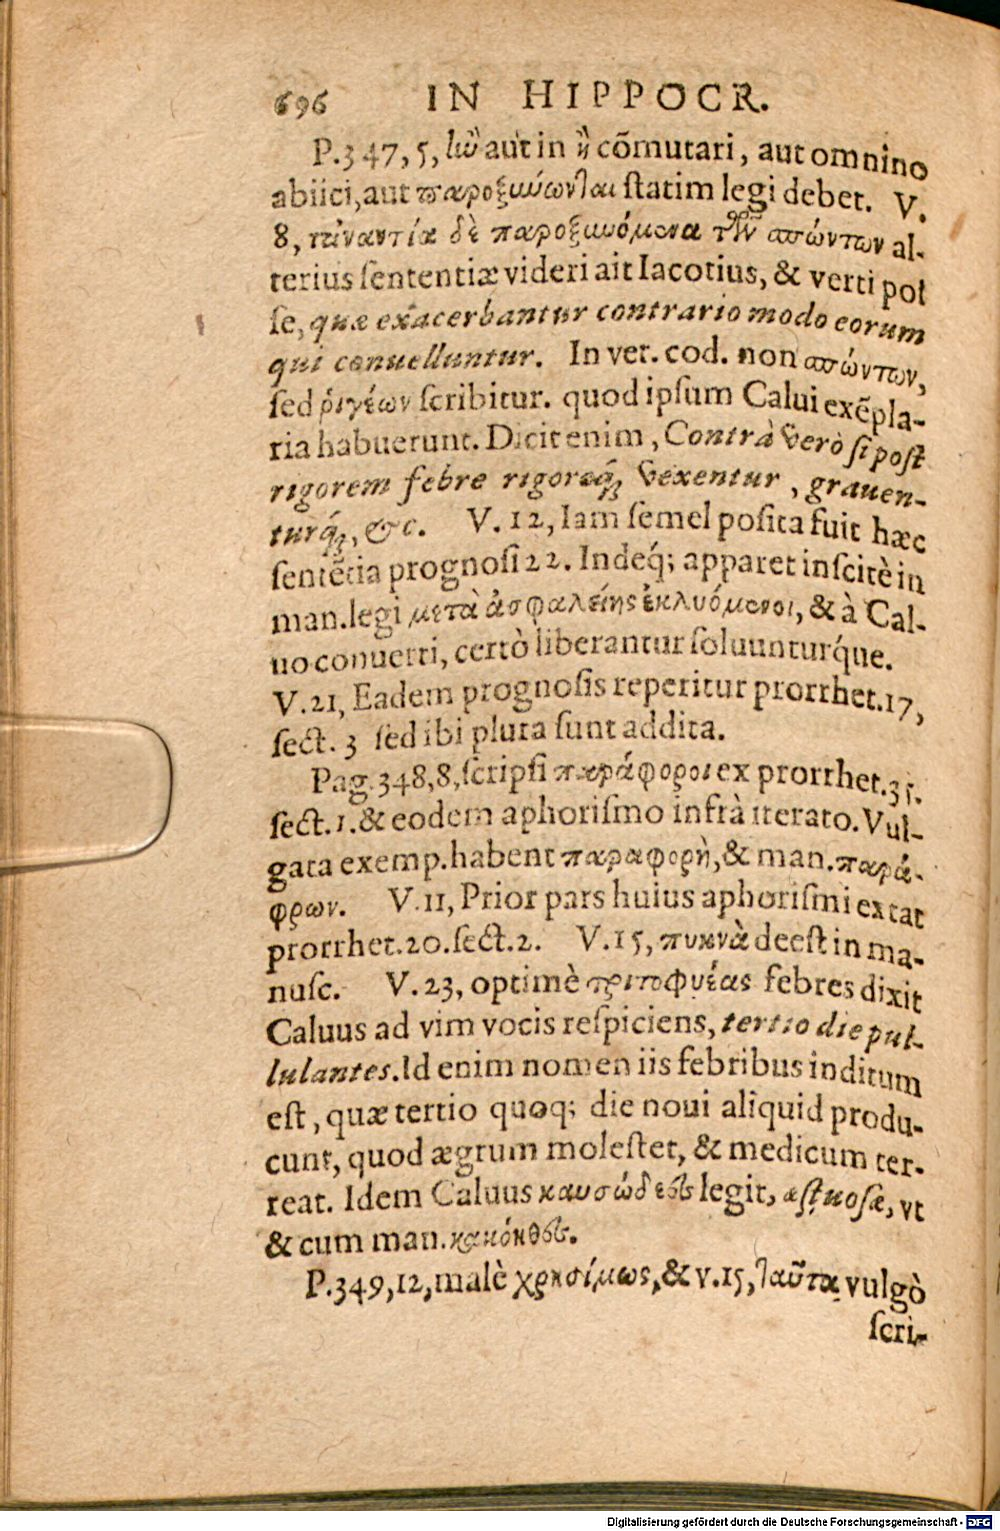 696 IN HIPPOCR.
P.347,5, ἰὼ aut in ἢ cõmutari, aut omnino
abiici, aut παροξυνωνται statim legi debet. V.
8, τἀναντία δὲ παροξυνόμενα τῶν σπώντων al-
terius ſententiæ videri ait Iacotius, & verti poſ
ſe, quæ exacerbantur contrario modo eorum
qui conuelluntur. In vet. cod. non σπώντων,
ſed ῥιγέων ſcribitur. quod ipſum Calui exẽpla-
ria habuerunt. Dicit enim, Contrà verò ſi poſt
rigorem febre rigoreq́; vexentur, grauen-
turq́;, &c. V. 12, Iam ſemel poſita fuit hæc
ſentẽtia prognoſi 22. Indeq́; apparet inſcitè in
man. legi μετὰ ἀσφαλείης ἐκλυόμενοι, & à Cal-
uo conuerti, certò liberantur ſoluunturq́ue.
V.21, Eadem prognoſis reperitur prorrhet.17,
ſect. 3 ſed ibi plura ſunt addita.
Pag.348,8, ſcripſi παράφοροι ex prorrhet.35.
ſect.1. & eodem aphoriſmo infrà iterato. Vul-
gata exemp. habent παραφορὴ, & man. παρά-
φρων. V.11, Prior pars huius aphoriſmi extat
prorrhet.20. ſect.2. V.15, πυκνὰ deeſt in ma-
nuſc. V.23, optimè τριτοφυέας febres dixit
Caluus ad vim vocis reſpiciens, tertio die pul-
lulantes. Id enim nomen iis febribus inditum
eſt, quæ tertio quoq; die noui aliquid produ-
cunt, quod ægrum moleſtet, & medicum ter-
reat. Idem Caluus καυσώδεες legit, æſtuoſæ, vt
& cum man. κακόηθες.
P.349,12, malè χρησίμως, & v.15, ταῦτα vulgò
ſcri-
Digitalisierung gefördert durch die Deutsche Forschungsgemeinschaft - DFG